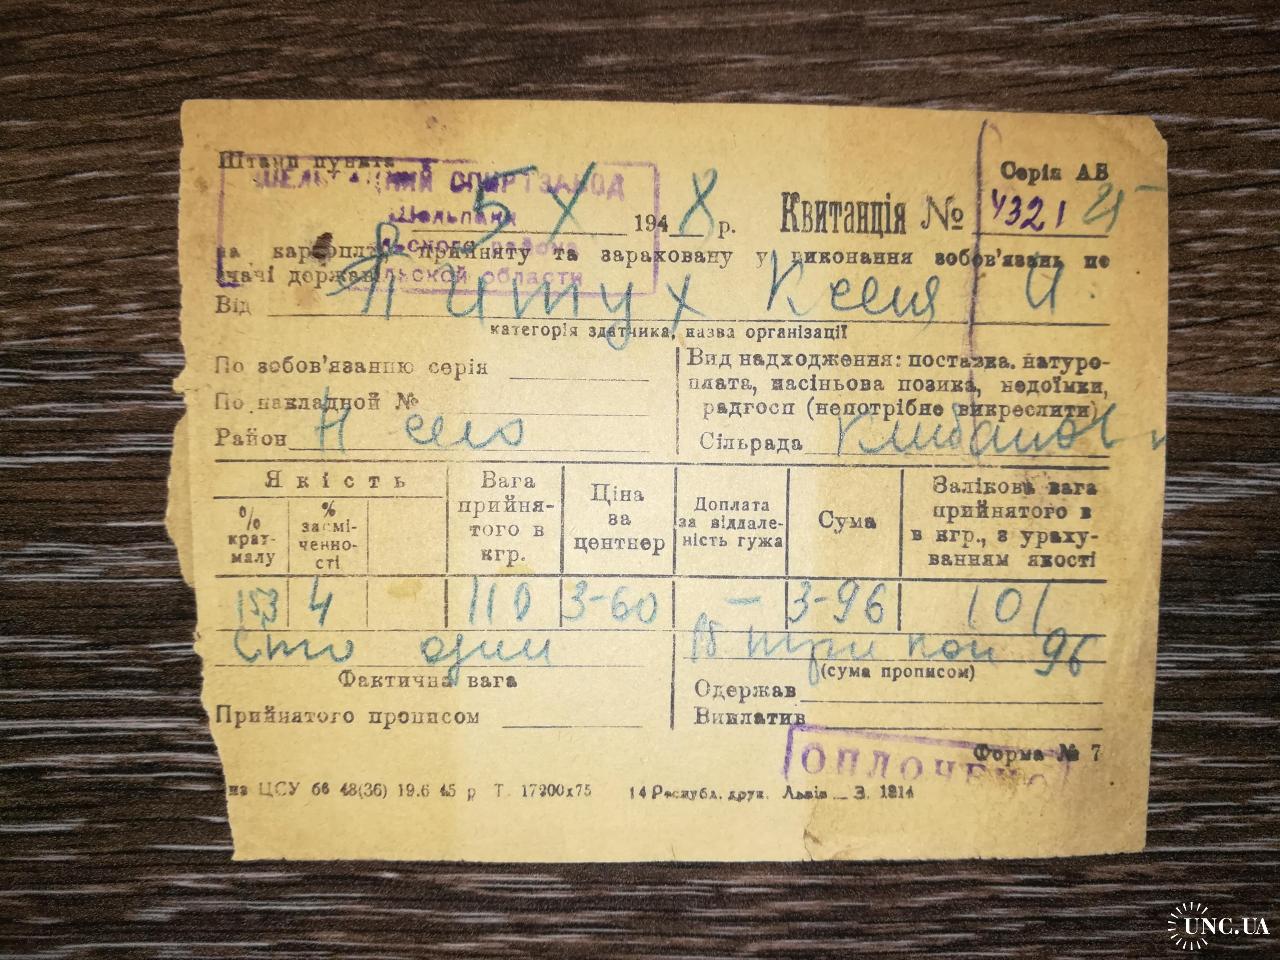 Штамп пункта
СПИРТЗАВОД
Шельпаки
района
области
Серія АБ
5 X 1948 р. Квитанція № 432125
за картоплю прийняту та зараховану у виконання зобов'язань по
здачі державі
Від Питух Ксеня И.
категорія здатчика, назва організації
По зобов'язанню серія
По накладной №
Район Н село
Вид надходження: поставка, натуро-
плата, насіньова позика, недоїмки,
радгосп (непотрібне викреслити)
Сільрада
Якість
% крат-
малу
% засмі-
ченно-
сті
Вага
прийня-
того в
кгр.
Ціна
за
центнер
Доплата
за віддале-
ність гужа
Сума
Залікова вага
прийнятого в
в кгр., з ураху-
ванням якості
153 4 110 3-60 — 3-96 101
Сто один
три коп 96
Фактична вага
(сума прописом)
Прийнятого прописом
Одержав
Виплатив
ОПЛОЧЕНО
Форма № 7
из ЦСУ бб 48(36) 19.6 45 р Т. 17200х75 14 Республ. друк. Львів — З. 1214
UNC.UA